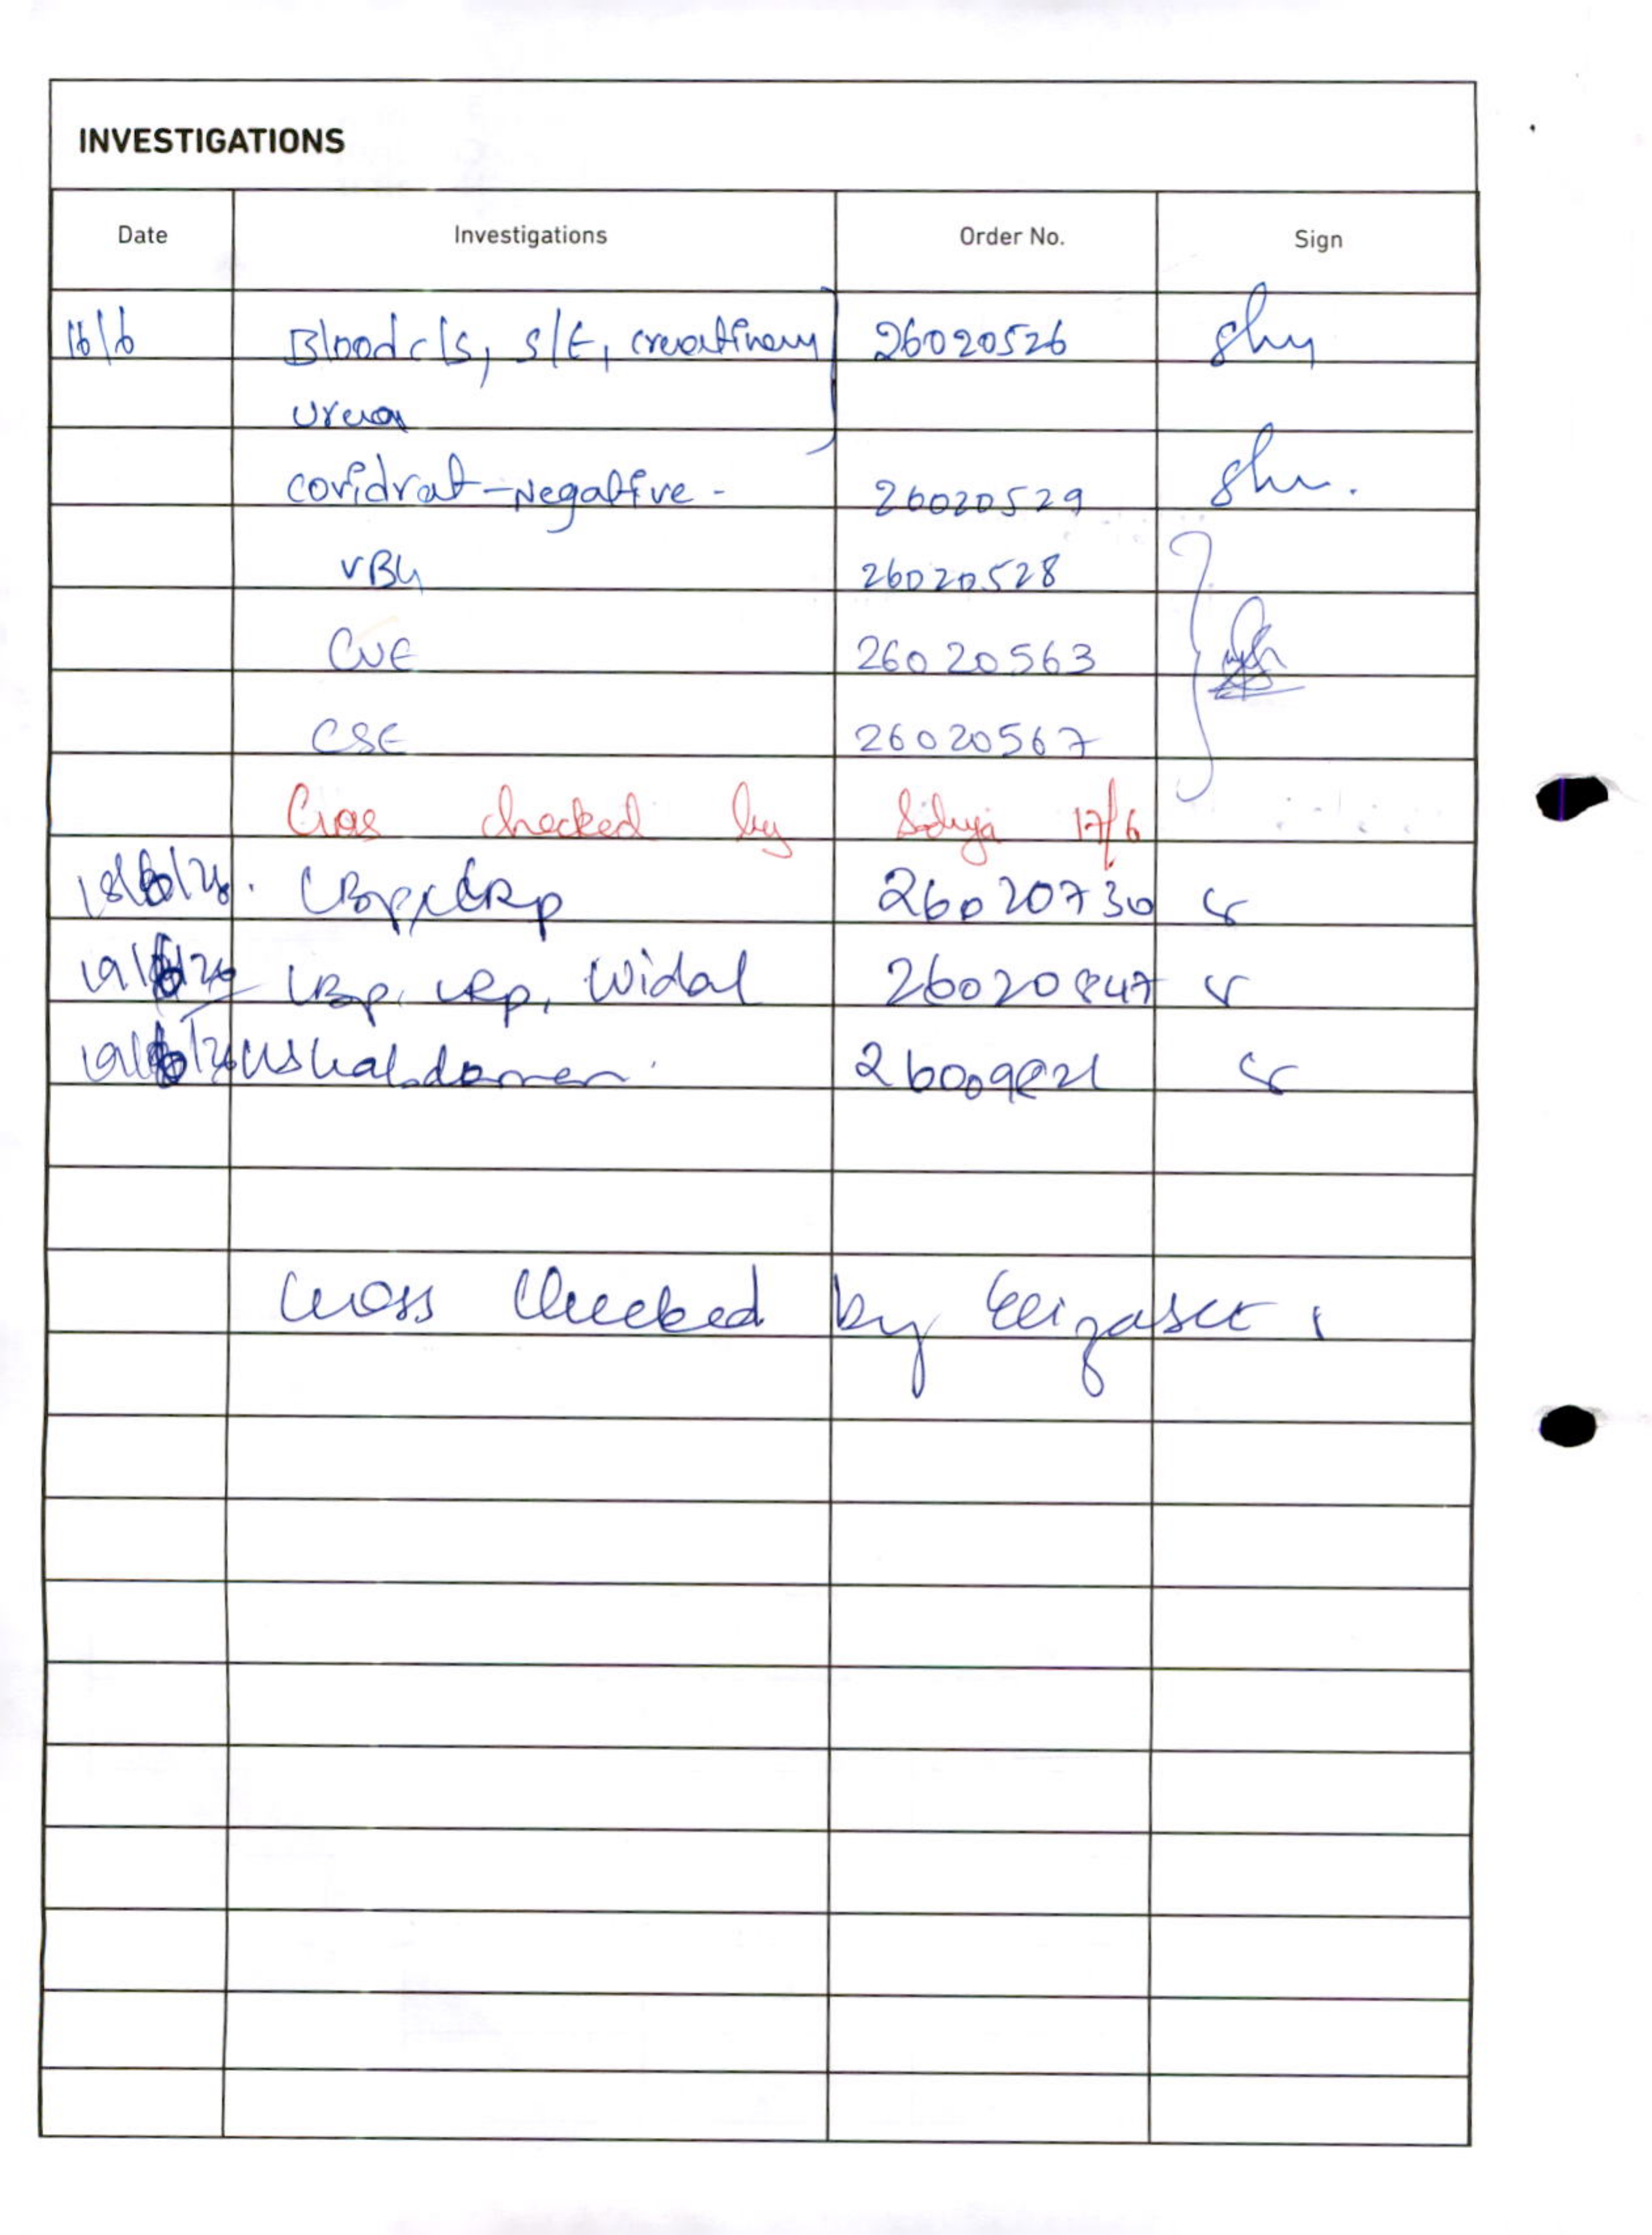 INVESTIGATIONS
Date Investigations Order No. Sign
16/6 Blood c/s, S/E, creatinine 26020526
urea
covidrat - Negative - 26020529
VBG 26020528
CUE 26020563
CSE 26020567
Cros checked by 17/6
18/6/26. CBP, CRP 26020730
19/6/26 CBP, CRP, Widal 26020847
19/6/26 US
Cross Checked by